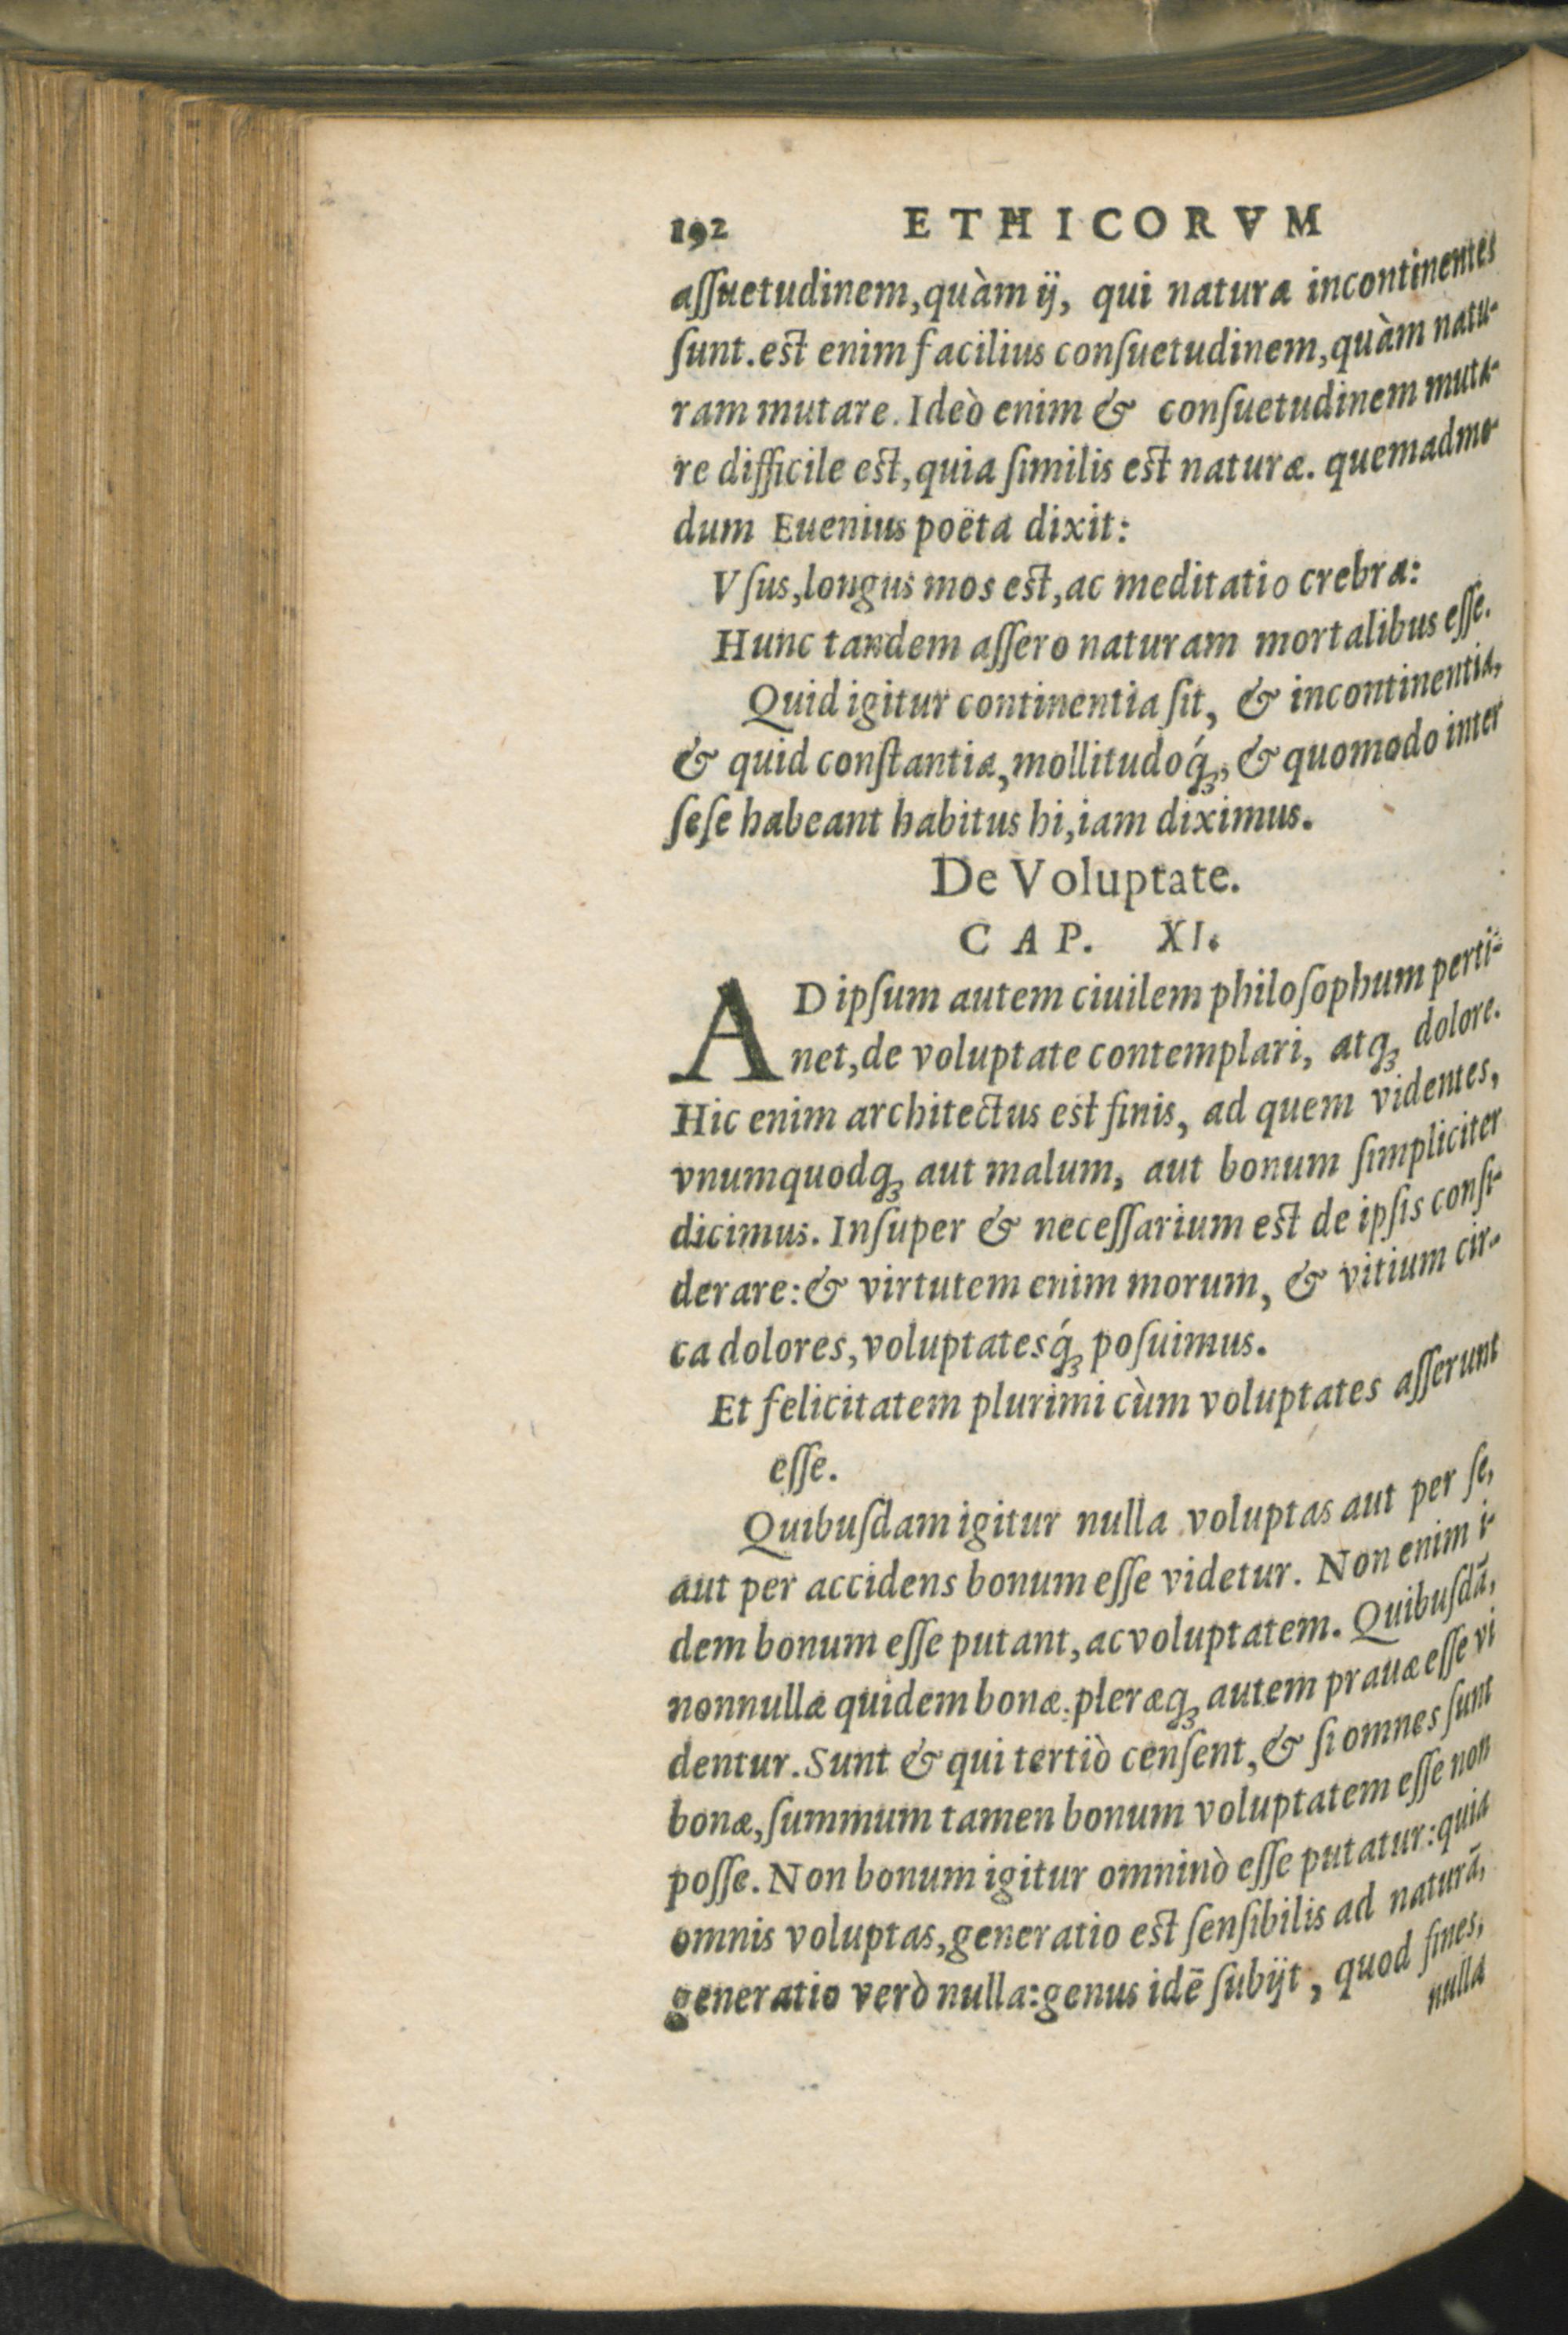 192 ETHICORVM
aſſuetudinem,quàm ij, qui natura incontinentes
ſunt.est enim facilius conſuetudinem,quàm natu-
ram mutare. Ideò enim & conſuetudinem muta-
re difficile est,quia ſimilis est naturæ. quemadmo
dum Euenius poëta dixit:
Vſus,longus mos est,ac meditatio crebra:
Hunc tandem aſſero naturam mortalibus eſſe.
Quid igitur continentia ſit, & incontinentia,
& quid conſtantia,mollitudoq́ꝫ, & quomodo inter
ſeſe habeant habitus hi,iam diximus.
De Voluptate.
CAP. XI.
AD ipſum autem ciuilem philoſophum perti-
net,de voluptate contemplari, atqꝫ dolore.
Hic enim architectus est finis, ad quem videntes,
vnumquodqꝫ aut malum, aut bonum ſimpliciter
dicimus. Inſuper & neceſſarium est de ipſis conſi-
derare:& virtutem enim morum, & vitium cir-
ca dolores,voluptatesq́ꝫ poſuimus.
Et felicitatem plurimi cùm voluptates aſſerunt
eſſe.
Quibuſdam igitur nulla voluptas aut per ſe,
aut per accidens bonum eſſe videtur. Non enim i-
dem bonum eſſe putant,ac voluptatem. Quibuſdā,
nonnullæ quidem bonæ:pleræqꝫ autem prauæ eſſe vi
dentur.Sunt & qui tertiò cenſent,& ſi omnes ſunt
bonæ,ſummum tamen bonum voluptatem eſſe non
poſſe. Non bonum igitur omninò eſſe putatur:quia
omnis voluptas,generatio est ſenſibilis ad naturā,
generatio verò nulla:genus idē ſubijt, quod fines,
nulla